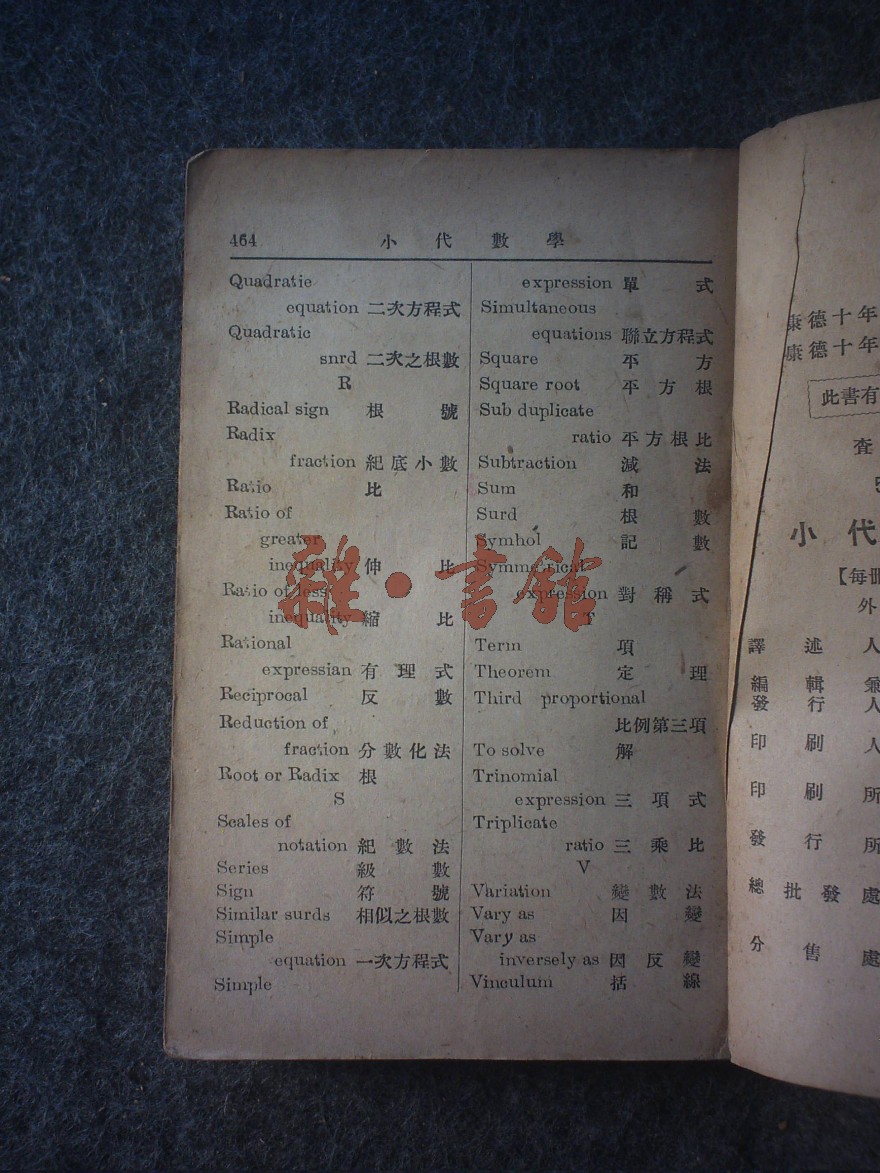 464 小代數學
Quadratic
equation 二次方程式
Quadratic
snrd 二次之根數
R
Radical sign 根號
Radix
fraction 紀底小數
Ratio 比
Ratio of
greater
inequality 伸比
Ratio of less
inequality 縮比
Rational
expressian 有理式
Reciprocal 反數
Reduction of
fraction 分數化法
Root or Radix 根
S
Scales of
notation 紀數法
Series 級數
Sign 符號
Similar surds 相似之根數
Simple
equation 一次方程式
Simple
expression 單式
Simultaneous
equations 聯立方程式
Square 平方
Square root 平方根
Sub duplicate
ratio 平方根比
Subtraction 減法
Sum 和
Surd 根數
Symhol 記數
Symmetrical
expression 對稱式
T
Term 項
Theorem 定理
Third proportional
比例第三項
To solve 解
Trinomial
expression 三項式
Triplicate
ratio 三乘比
V
Variation 變數法
Vary as 因變
Vary as
inversely as 因反變
Vinculum 括線
雜·書館
康德十年
康德十年
此書有
查
小代
【每冊
外
譯述人
編輯兼
發行人
印刷人
印刷所
發行所
總批發處
分售處